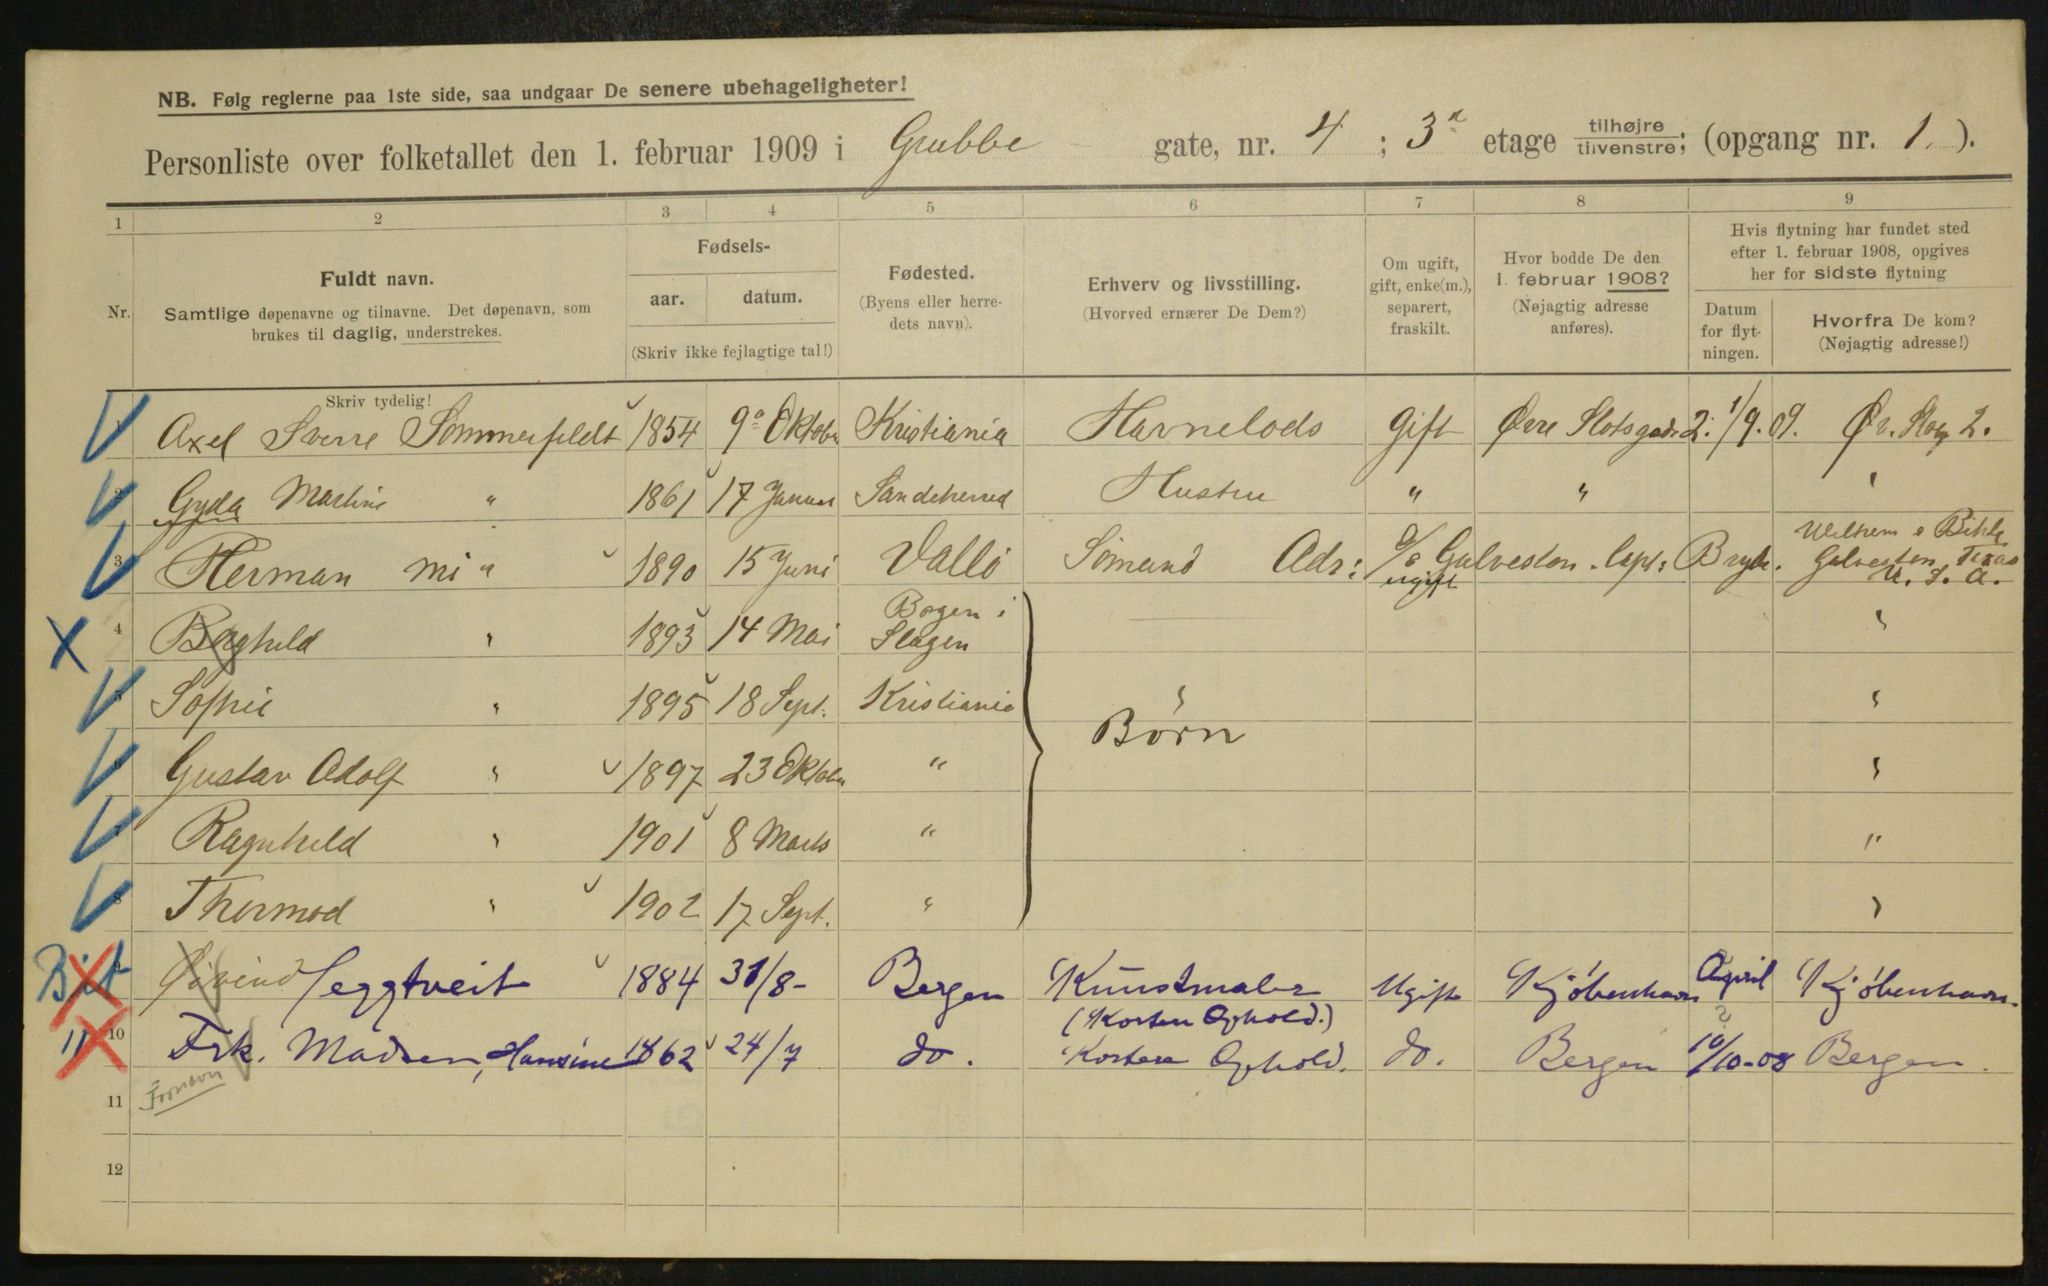 NB. Følg reglerne paa 1ste side, saa undgaar De senere ubehageligheter!
Personliste over folketallet den 1. februar 1909 i Grubbe gate, nr. 4 ; 3 etage tilhøjre tilvenstre; (opgang nr. 1. ).
1 2 3 4 5 6 7 8 9
Nr.
Fuldt navn.
Samtlige døpenavne og tilnavne. Det døpenavn, som
brukes til daglig, understrekes.
Fødsels-
aar. datum.
(Skriv ikke fejlagtige tal!)
Fødested.
(Byens eller herre-
dets navn).
Erhverv og livsstilling.
(Hvorved ernærer De Dem?)
Om ugift,
gift, enke(m.),
separert,
fraskilt.
Hvor bodde De den
1. februar 1908?
(Nøjagtig adresse
anføres).
Hvis flytning har fundet sted
efter 1. februar 1908, opgives
her for sidste flytning
Datum
for flyt-
ningen.
Hvorfra De kom?
(Nøjagtig adresse!)
Skriv tydelig!
1 Axel Sverre Sømmerfeldt 1854 9 Oktober Kristiania Havnelods Gift Øvre Slotsgade 2. 1/9. 09. Øv. Slog 2.
2 Gyda Martine " 1861 17 Januar Sandeherred Hustru " "
3 Herman " 1890 15 Juni Vallö Sömand Adr: c/o Galveston. Capt: Bryde. Wilhem & Bihle
ugift Galveston Texas
U. S. A.
4 Borghild " 1893 14 Mai Bogen i
Slagen "
5 Sofhie " 1895 18 Sept. Kristiania "
Børn
6 Gustav Adolf " 1897 23 Oktober " "
7 Ragnhild " 1901 8 Marts " "
8 Thormod " 1902 17 Sept. " "
Bit 9 Øivind Seggtveit 1884 31/8- Bergen Kunstmaler Ugift Kjöbenhavn April Kjöbenhavn.
(Kortere Ophold.) ?
" 10 Frk. Madsen, Hansine 1862 24/7 do. Kortere Ophold. do. Bergen 10/10-08 Bergen.
Fornavn
11
12